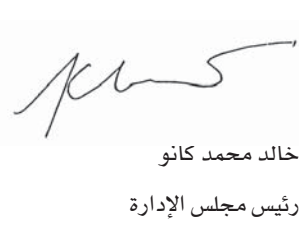 خالد محمد كانو
رئيس مجلس الإدارة